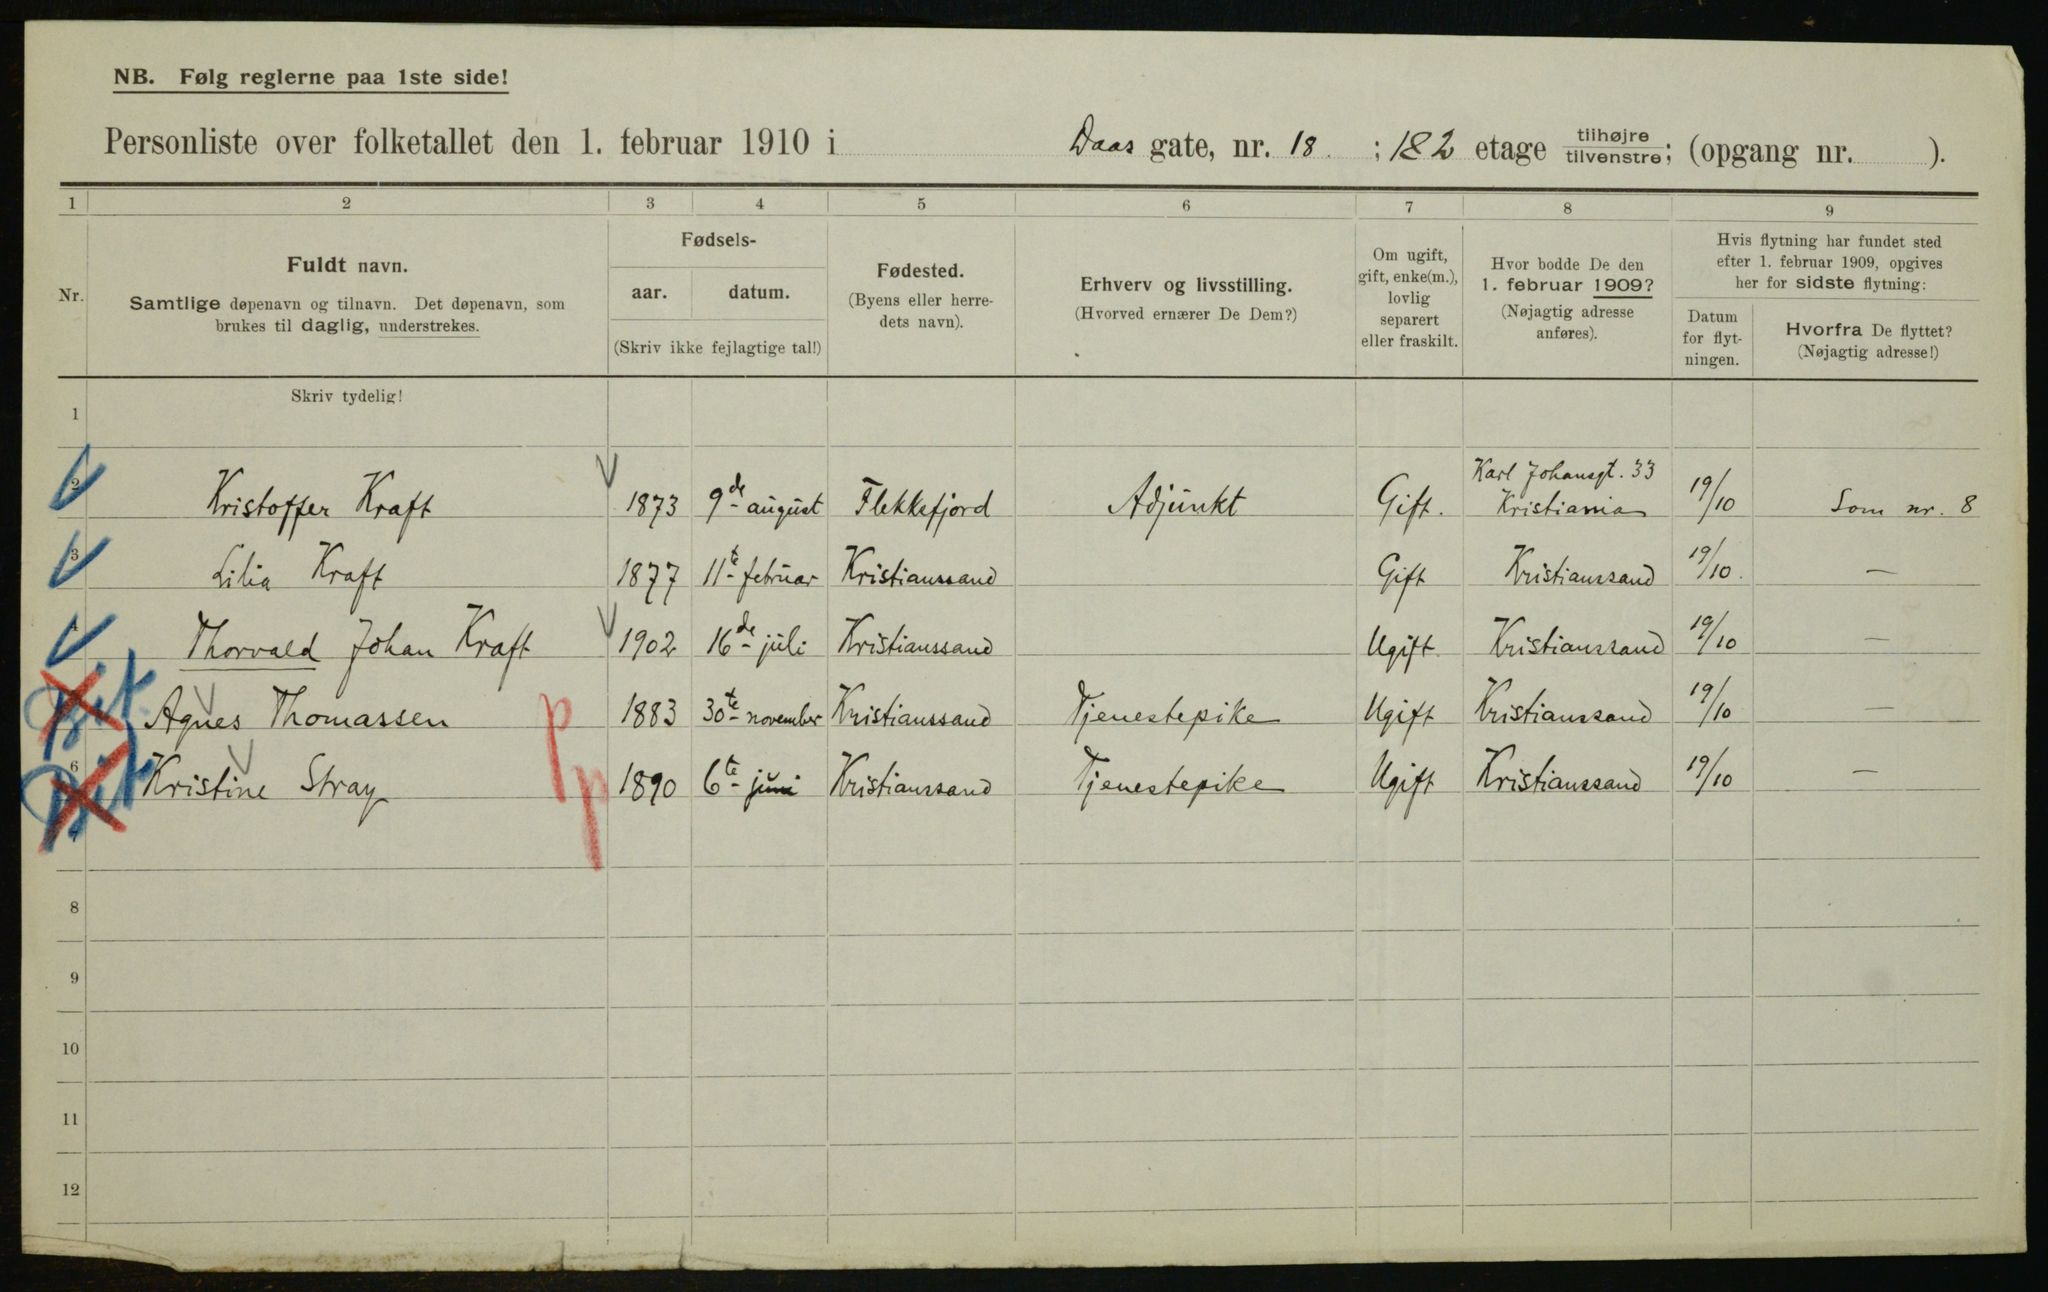 NB. Følg reglerne paa 1ste side!
Personliste over folketallet den 1. februar 1910 i Daas gate, nr. 18 ; 1&2 etage tilhøjre tilvenstre; (opgang nr. ).
1 2 3 4 5 6 7 8 9
Nr.
Fuldt navn.
Samtlige døpenavn og tilnavn. Det døpenavn, som
brukes til daglig, understrekes.
Fødsels-
aar. datum.
(Skriv ikke fejlagtige tal!)
Fødested.
(Byens eller herre-
dets navn).
Erhverv og livsstilling.
(Hvorved ernærer De Dem?)
Om ugift,
gift, enke(m.),
lovlig
separert
eller fraskilt.
Hvor bodde De den
1. februar 1909?
(Nøjagtig adresse
anføres).
Hvis flytning har fundet sted
efter 1. februar 1909, opgives
her for sidste flytning:
Datum
for flyt-
ningen.
Hvorfra De flyttet?
(Nøjagtig adresse!)
Skriv tydelig!
1
2 Kristoffer Kraft 1873 9de august Flekkefjord Adjunkt Gift. Karl Johansgt. 33 Kristiania 19/10 Som nr. 8
3 Lilia Kraft 1877 11te februar Kristianssand Gift Kristianssand 19/10. —
4 Thorvald Johan Kraft 1902 16de juli Kristianssand Ugift Kristianssand 19/10 —
Agnes Thomassen p 1883 30te november Kristianssand Tjenestepike Ugift Kristianssand 19/10 —
6 Kristine Stray p 1890 6te juni Kristianssand Tjenestepike Ugift Kristianssand 19/10 —
7
8
9
10
11
12